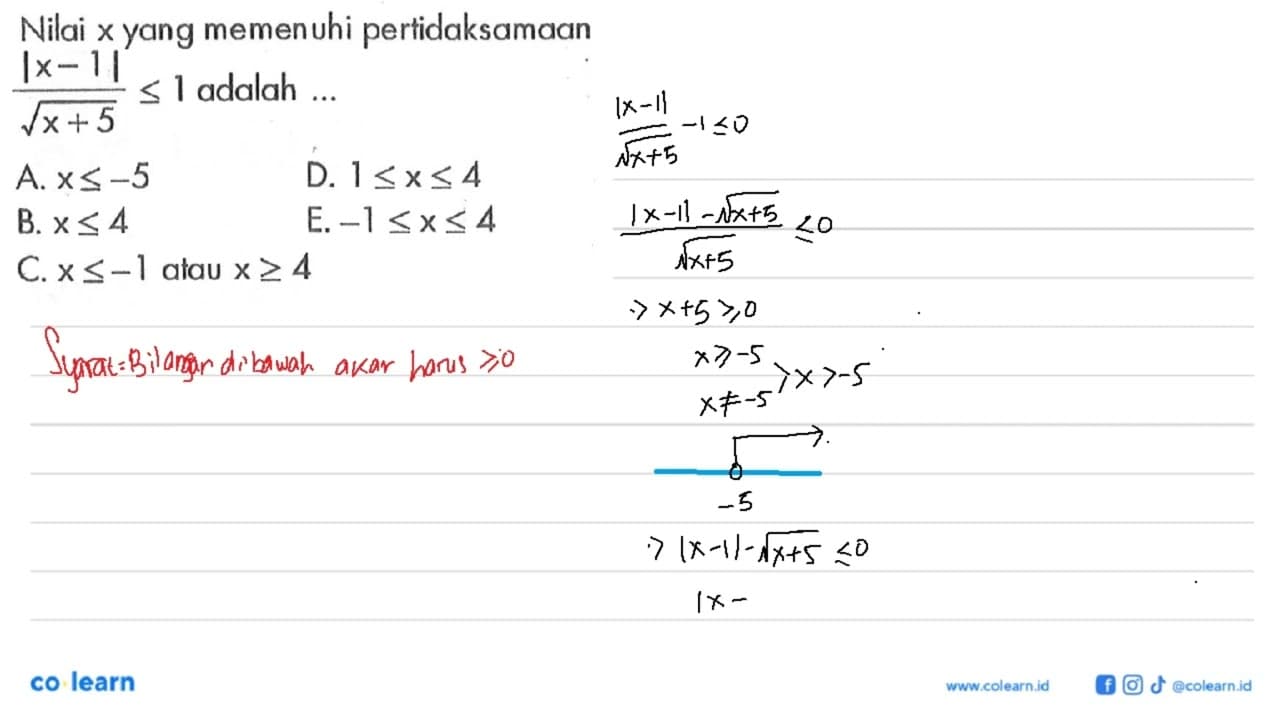 Nilai x yang memenuhi pertidaksamaan
|x-1|/√x+5 ≤ 1 adalah ...
A. x ≤ -5
B. x ≤ 4
C. x ≤ -1 atau x ≥ 4
D. 1 ≤ x ≤ 4
E. -1 ≤ x ≤ 4
Syarat = Bilangan dibawah akar harus ≥ 0
|x-1|/√x+5 -1 ≤ 0
|x-1| - √x+5/√x+5 ≤ 0
-> x+5 ≥ 0
x ≥ -5
x ≠ -5 > x > -5
-5
-> |x-1| - √x+5 ≤ 0
|x -
co learn
www.colearn.id
@colearn.id